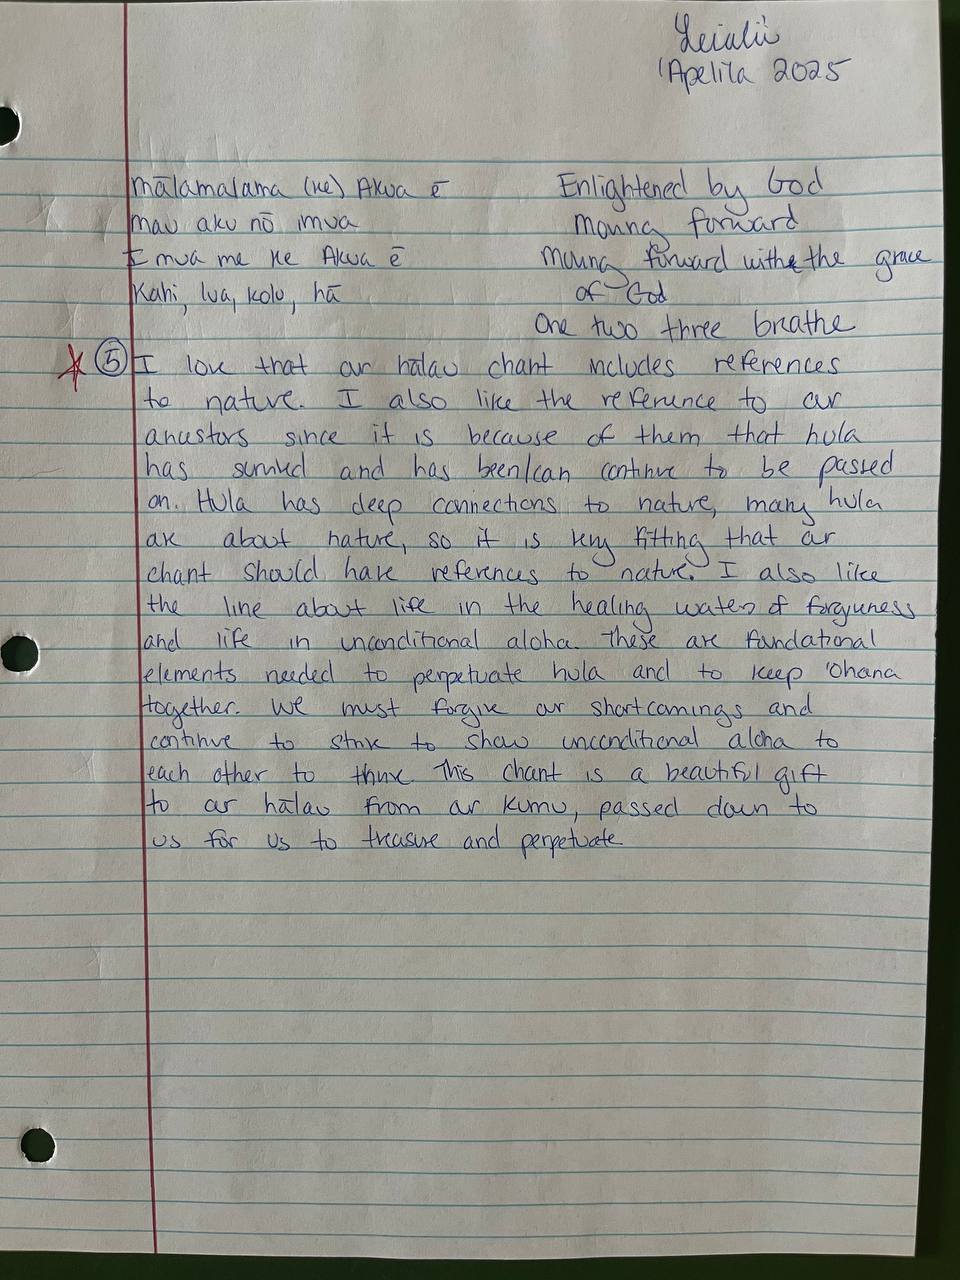 Leialiʻi
ʻApelila 2025
mālamalama (ke) Akua ē Enlightened by God
mau aku nō imua Moving forward
I mua me ke Akua ē Moving forward with the grace
Kahi, lua, kolu, hā of God
One two three breathe
⑤ I love that our hālau chant includes references
to nature. I also like the reference to our
ancestors since it is because of them that hula
has survived and has been/can continue to be passed
on. Hula has deep connections to nature, many hula
are about nature, so it is very fitting that our
chant should have references to nature. I also like
the line about life in the healing waters of forgiveness
and life in unconditional aloha. These are foundational
elements needed to perpetuate hula and to keep ʻOhana
together. We must forgive our shortcomings and
continue to strive to show unconditional aloha to
each other to thrive This chant is a beautiful gift
to our hālau from our Kumu, passed down to
us for us to treasure and perpetuate.